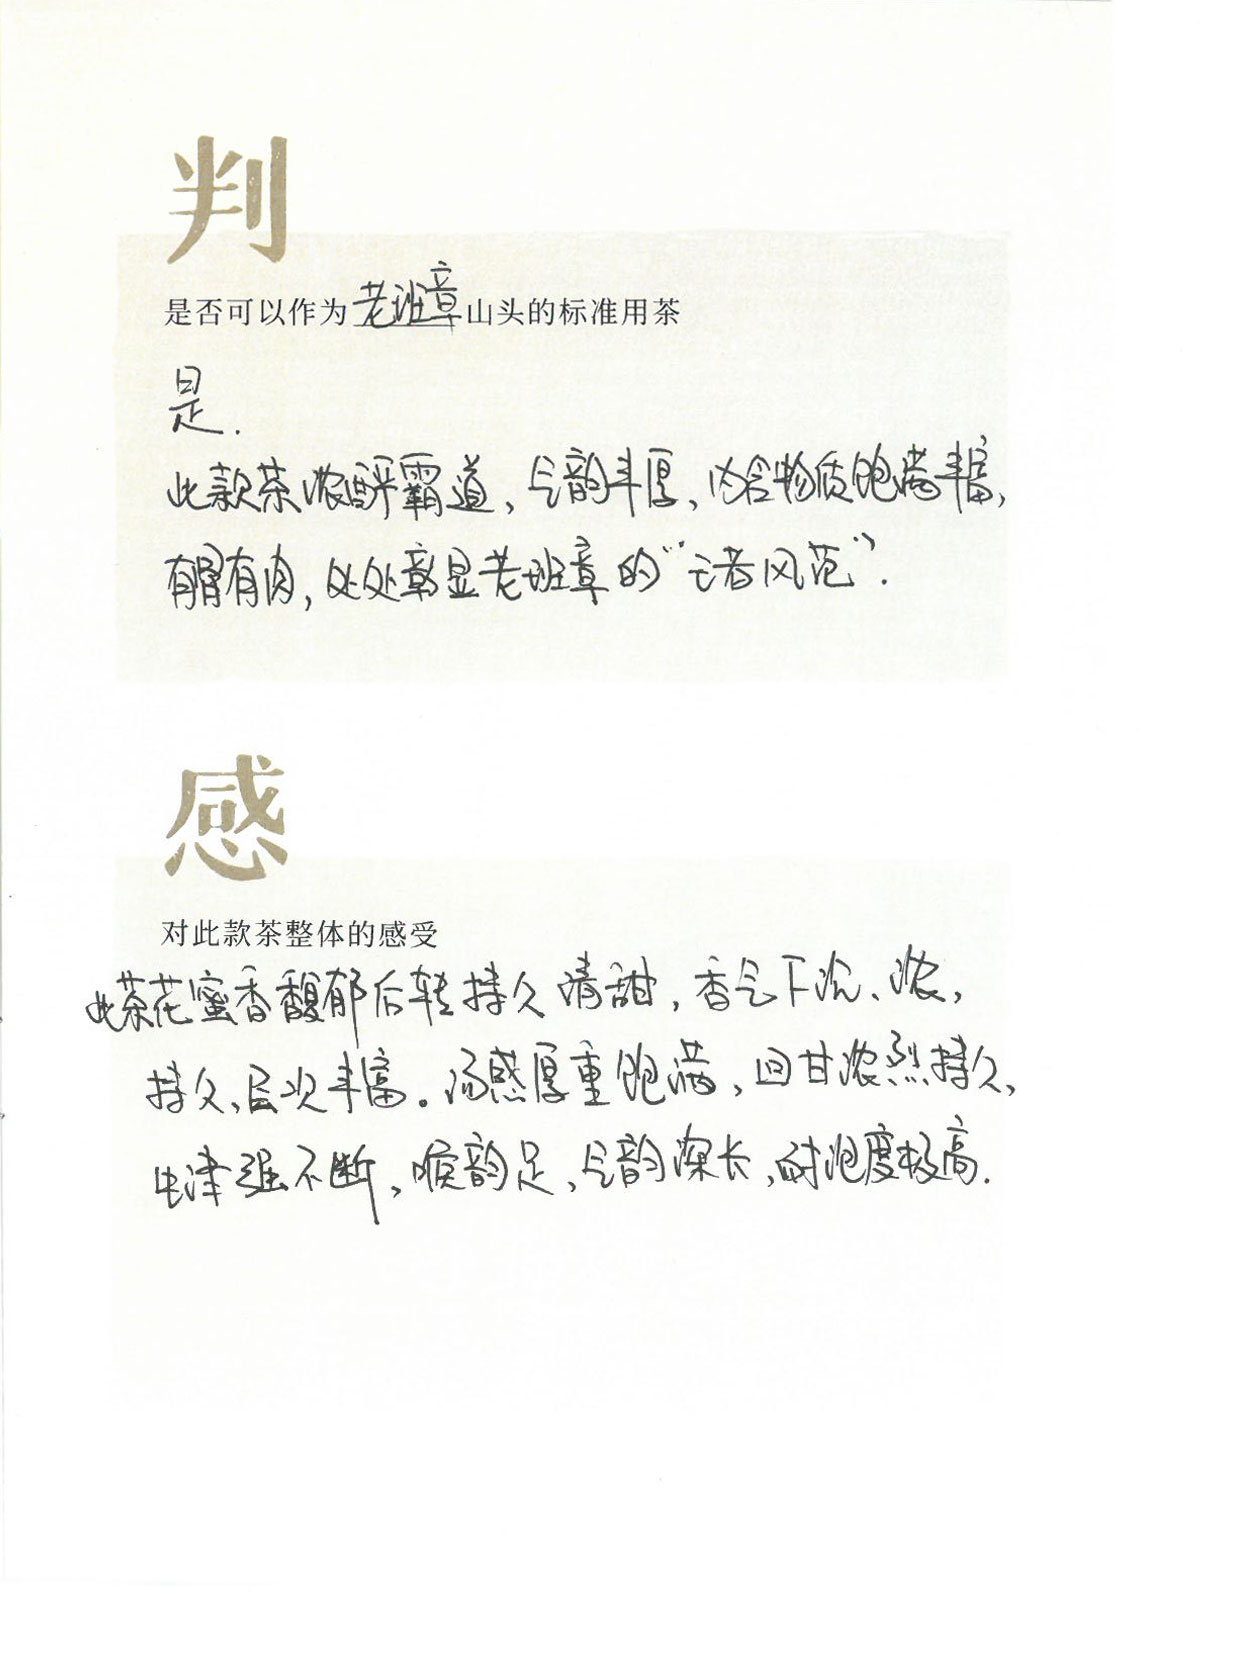 判
是否可以作为老班章山头的标准用茶
是.
此款茶浓酽霸道,气韵丰厚,内含物质饱满丰富,
有骨有肉,处处彰显老班章的“王者风范”.
感
对此款茶整体的感受
此茶花蜜香馥郁后转持久清甜,香气下沉、浓,
持久、层次丰富。汤感厚重饱满,回甘浓烈持久,
生津强不断,喉韵足,气韵深长,耐泡度极高.